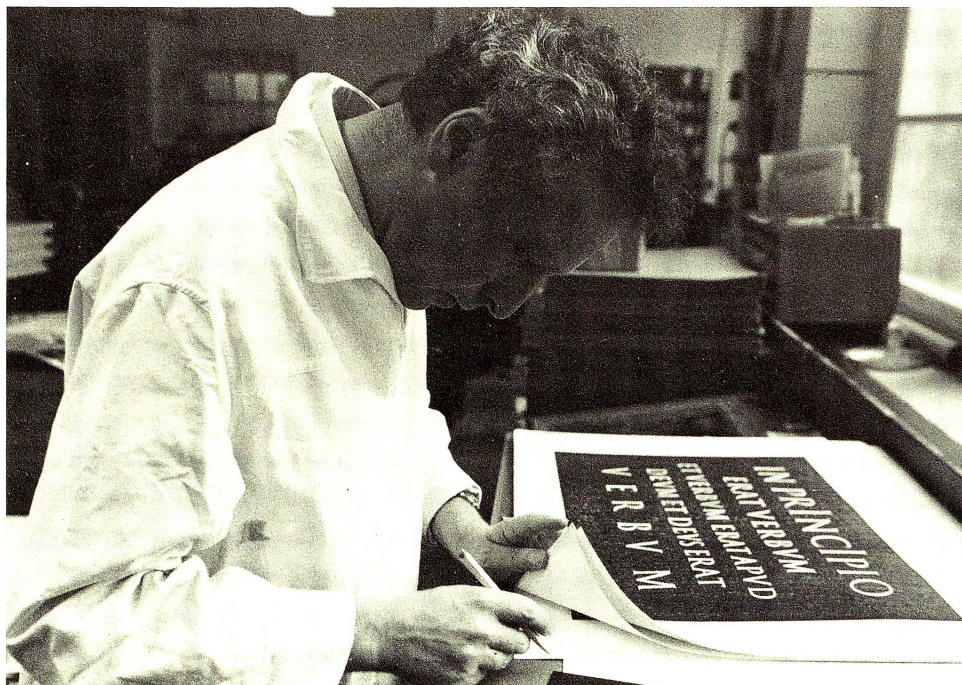 IN PRINCIPIO
ERAT VERBVM
ET VERBVM ERAT APVD
DEVM ET DEVS ERAT
V E R B V M